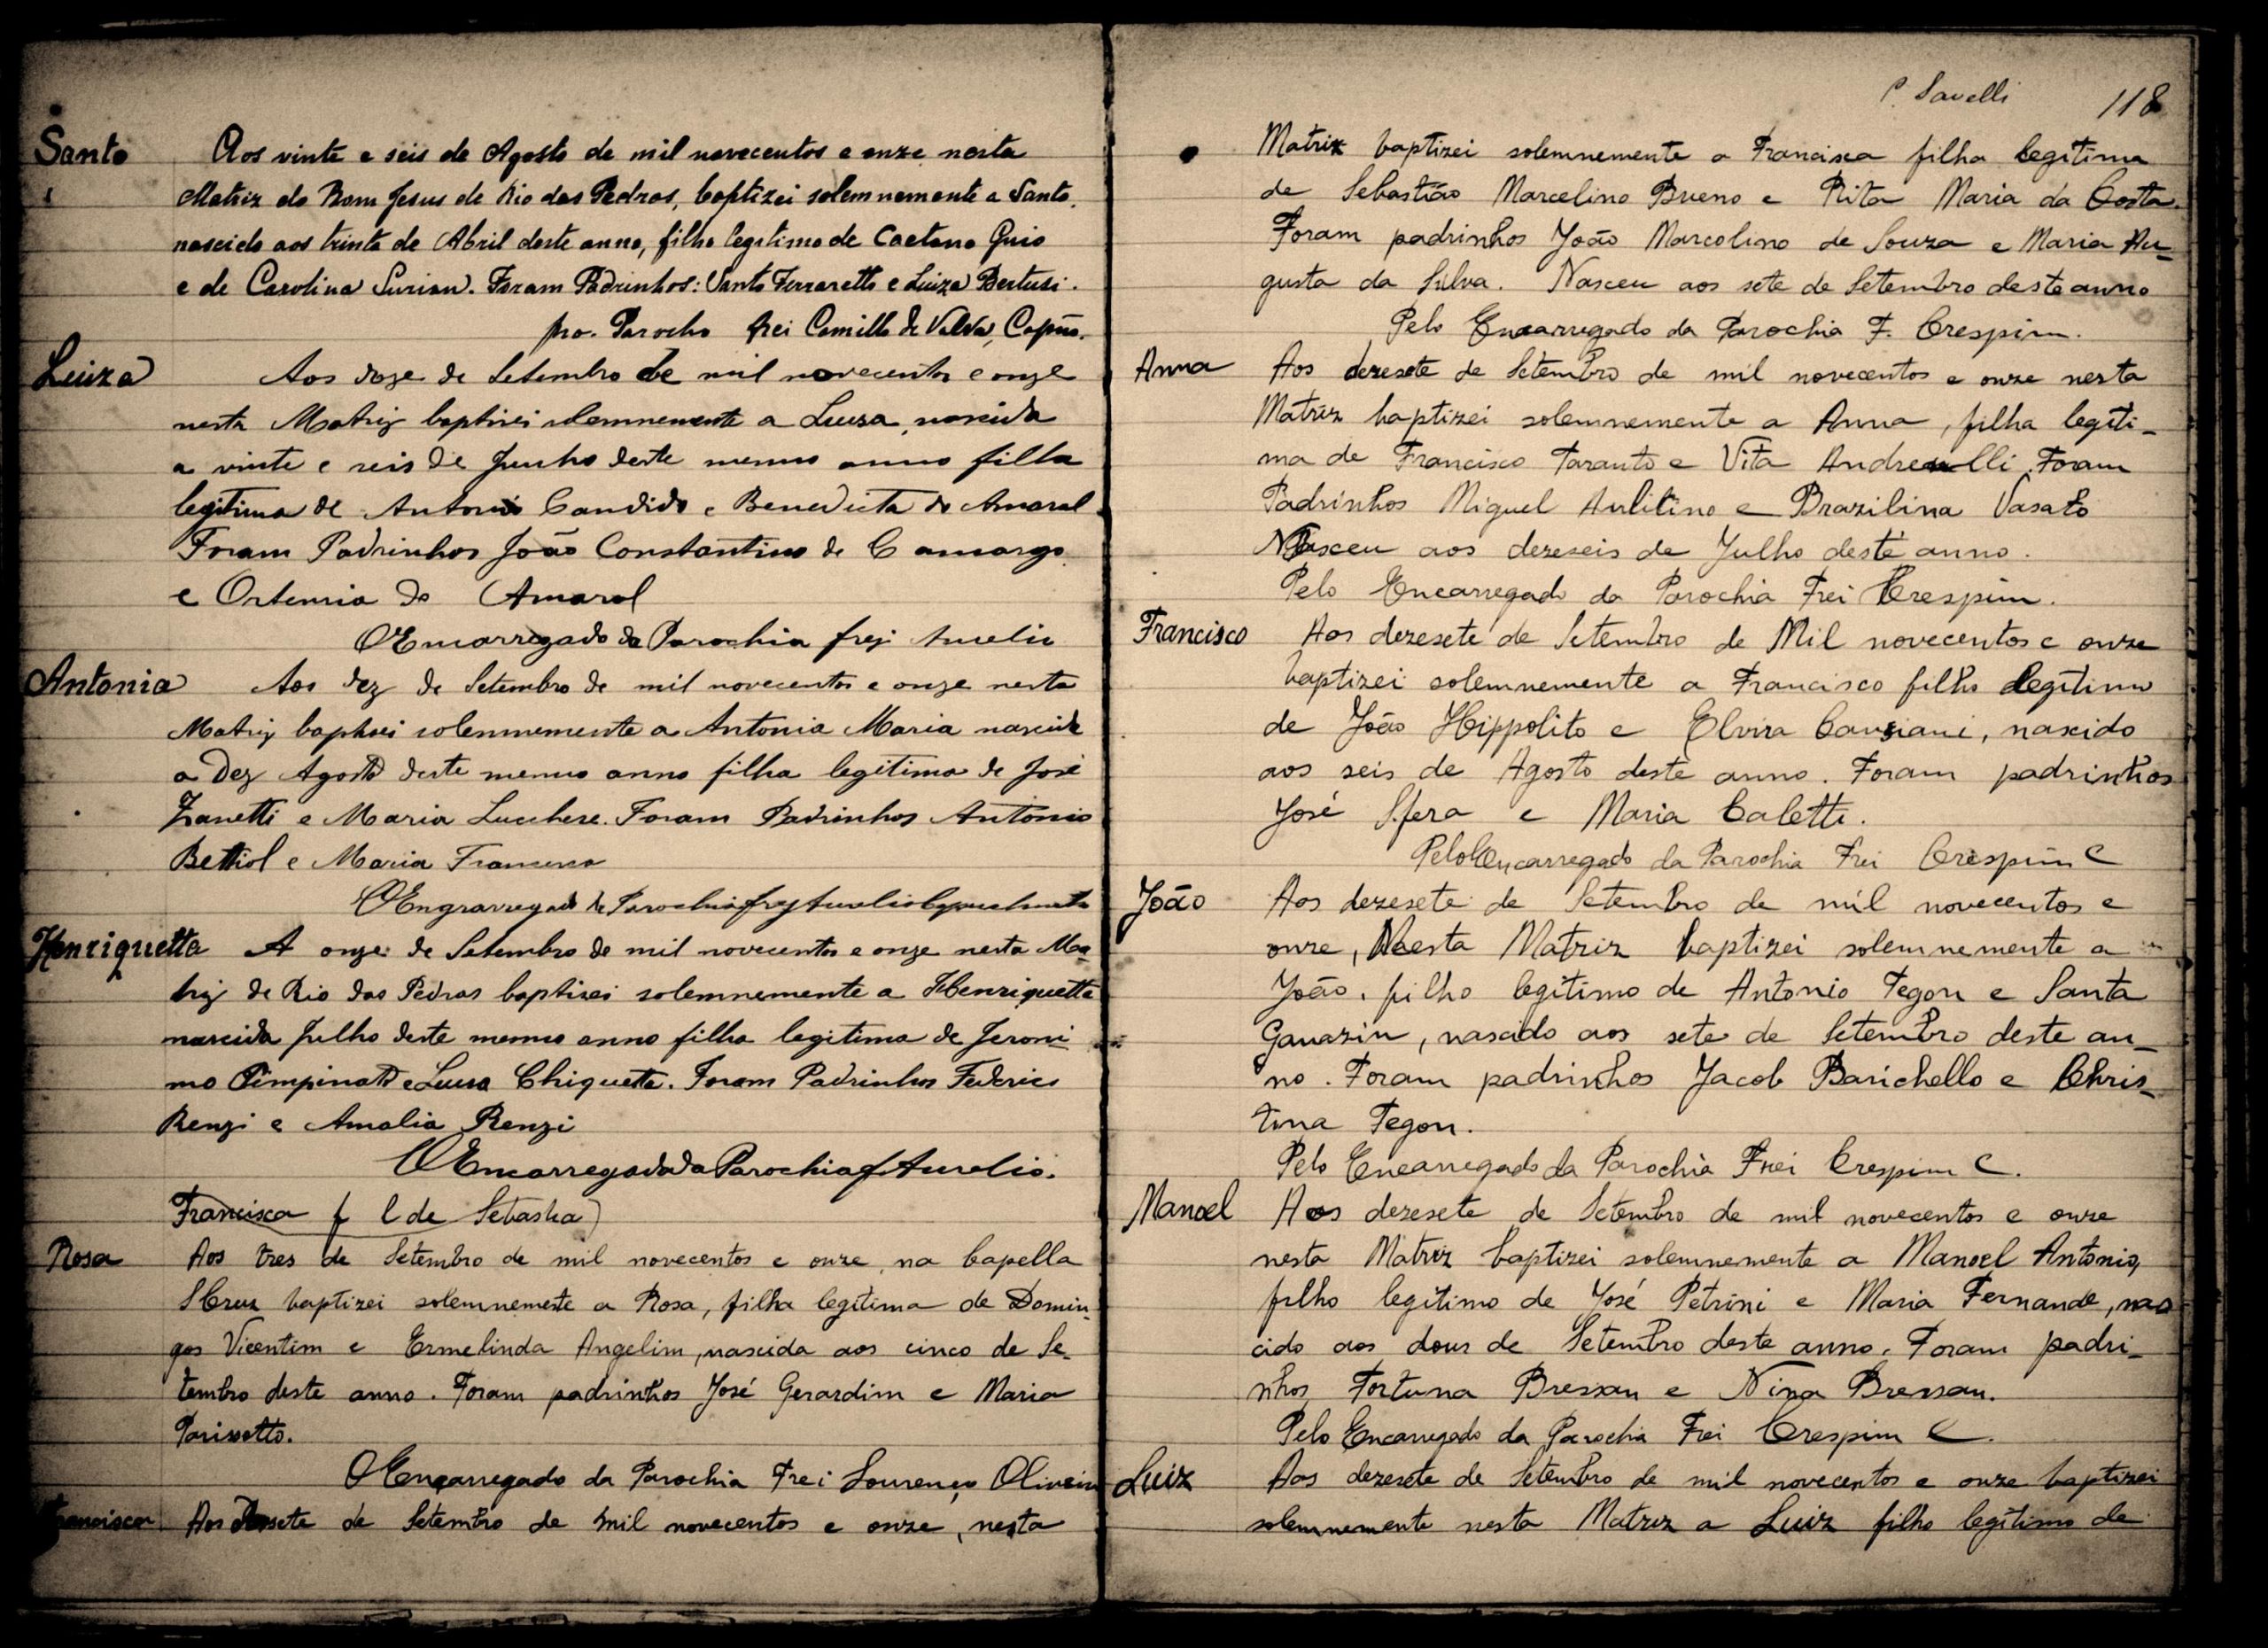 Santo
Aos vinte e seis de Agosto de mil novecentos e onze nesta
Matriz do Bom Jesus de Rio das Pedras, baptizei solemnemente a Santo,
nascido aos trinta de Abril deste anno, filho legitimo de Caetano Guio
e de Carolina Surian. Foram Padrinhos: Santo Ferraretto e Luiza Bertusi.
pro. Parocho frei Camillo de Valda, Capno.
Luiza
Aos doze de Setembro de mil novecentos e onze
nesta Matriz baptisei solemnemente a Luiza, nascida
a vinte e seis de Junho deste mesmo anno filha
legitima de Antonio Candido e Benedicta do Amaral.
Foram Padrinhos João Constantino de Camargo
e Ortencia do Amaral
O Encarregado da Parochia frei Aurelio
Antonia
Aos dez de Setembro de mil novecentos e onze nesta
Matriz baptisei solennemente a Antonia Maria nascida
a Dez Agosto deste mesmo anno filha legitima de José
Zanetti e Maria Lucchese. Foram Padrinhos Antonio
Bettiol e Maria
O Engravregado da Parochia frey Aurelio
Henriquetta
A onze de Setembro de mil novecentos e onze nesta Ma-
triz de Rio das Pedras baptisei solemnemente a Henriquetta
nascida Julho deste mesmo anno filha legitima de Jeroni
mo Pimpinato e Luisa Chiquetta. Foram Padrinhos Federico
Renzi e Amalia Renzi
O Encarregado da Parochia f Aurelio.
Francisca f l de Sebastia)
Rosa
Aos tres de Setembro de mil novecentos e onze, na Capella
S Cruz baptizei solemnemente a Rosa, filha legitima de Domin
gos Vicentim e Ermelinda Angelim, nascida aos cinco de Se-
tembro deste anno. Foram padrinhos José Gerardim e Maria
Parissotto.
O Encarregado da Parochia Frei Lourenço Oliveir
Francisca
Aos desete de Setembro de mil novecentos e onze, nesta
P. Savelli
118
Matriz baptizei solemnemente a Francisca filha legitima
de Sebastião Marcelino Bueno e Rita Maria da Costa.
Foram padrinhos João Marcolino de Souza e Maria Au-
gusta da Silva. Nasceu aos sete de Setembro deste anno
Pelo Encarregado da Parochia F. Crespim.
Anna
Aos dezesete de Setembro de mil novecentos e onze nesta
Matriz baptizei solemnemente a Anna, filha legiti-
ma de Francisco Taranto e Vita Foram
Padrinhos Miguel Aulitino e Brazilina Vasato
Nasceu aos dezeseis de Julho deste anno.
Pelo Encarregado da Parochia Frei Crespim.
Francisco
Aos dezesete de Setembro de Mil novecentos e onze
baptizei solemnemente a Francisco filho legitimo
de João Hippolito e Elvira Cansiani, nascido
aos seis de Agosto deste anno. Foram padrinhos
José Sfera e Maria Caletti.
Pelo Encarregado da Parochia Frei Crespim C
João
Aos dezesete de Setembro de mil novecentos e
onze, Nesta Matriz baptizei solemnemente a
João, filho legitimo de Antonio Tegon e Santa
Ganazin, nascido aos sete de Setembro deste an-
no. Foram padrinhos Jacob Barichello e Chris-
tina Tegon.
Pelo Encarregado da Parochia Frei Crespim C.
Manoel
Aos dezesete de Setembro de mil novecentos e onze
nesta Matriz baptizei solemnemente a Manoel Antonio,
filho legitimo de José Petrini e Maria Fernande, nas
cido aos dous de Setembro deste anno. Foram padri-
nhos Fortuna Bressan e Nina Bressan.
Pelo Encarregado da Parochia Frei Crespim C.
Luiz
Aos dezesete de Setembro de mil novecentos e onze baptizei
solemnemente nesta Matriz a Luiz filho legitimo de